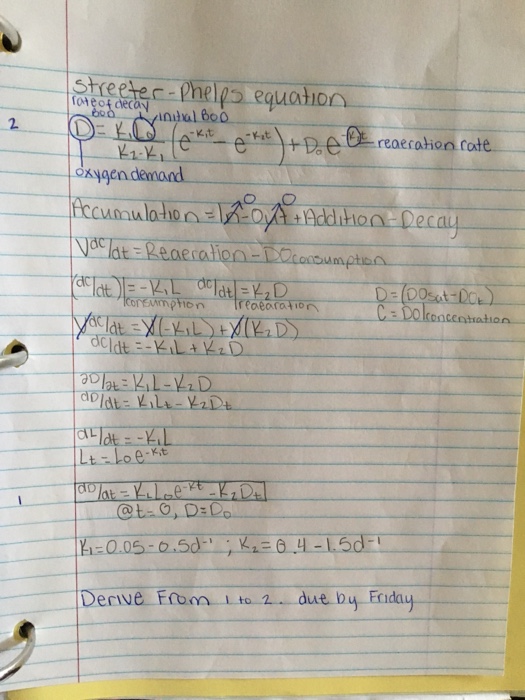 Streeter-Phelps equation
rate of decay
BOD
initial BOD
2
D = K₁L₀/K₂-K₁ (e^-K₁t - e^-K₂t) + D₀e^-K₂t reaeration rate
oxygen demand
Accumulation = In - Out + Addition - Decay
Vdc/dt = Reaeration - DO consumption
(dc/dt)| = -K₁L dc/dt| = K₂D D = (DOsat - DOt)
consumption reaearation C = DO concentration
Vdc/dt = V(-K₁L) + V(K₂D)
dc/dt = -K₁L + K₂D
∂D/∂t = K₁L - K₂D
dD/dt = K₁Lt - K₂Dt
dL/dt = -K₁L
Lt = L₀e^-K₁t
1
dD/dt = K₁L₀e^-Kt - K₂Dt
@t=0, D=D₀
K₁ = 0.05-0.5d⁻¹ ; K₂ = 0.4-1.5d⁻¹
Derive From 1 to 2. due by Friday